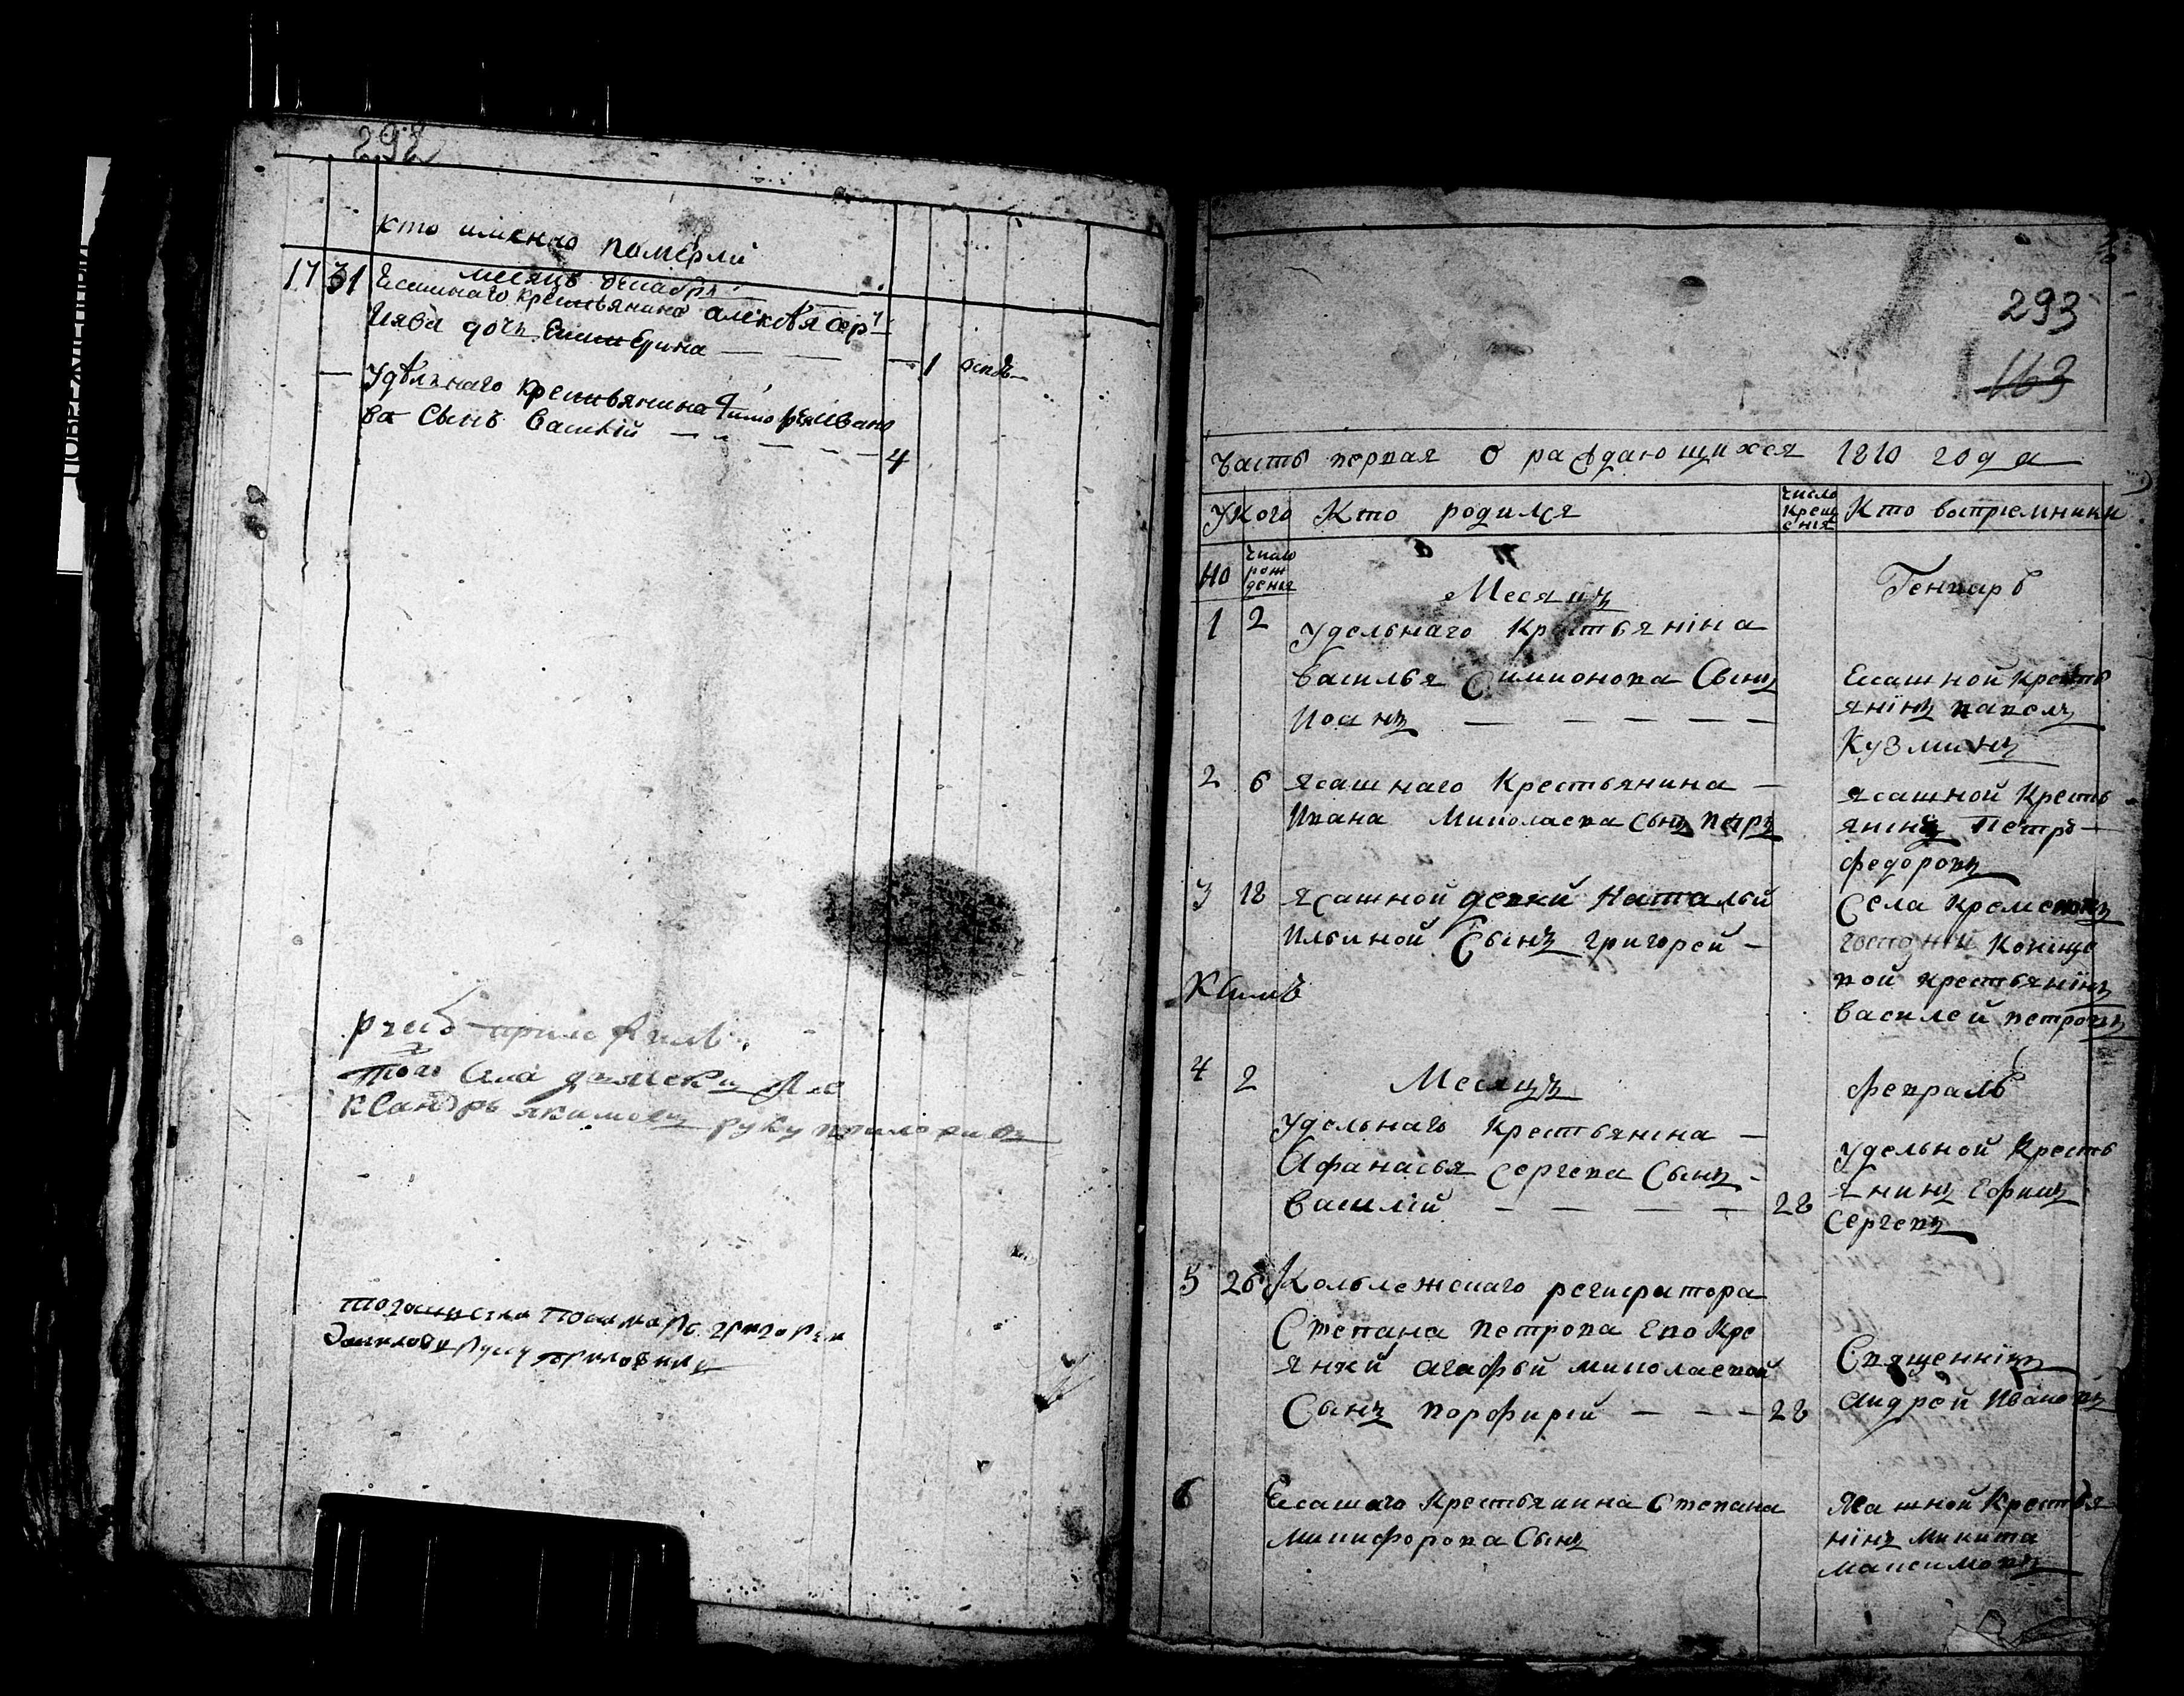 292
кто именно померли
месяцъ декабрь
17 31 Есашнаго крестьянина алексѣя сер
гиява дочь Екатерина — — — 1 оспа —
— Удѣлнаго крестьянина Тимофея Ивано
ва Сынъ Василій — — — — 4
руку приложилъ
того села дьячекъ Але
ксандръ якимовъ руку приложилъ
того села пономарь григорей
руку приложилъ
293
163
Часть первая о раждающихся 1810 года
У кого Кто родился
число
Крещ
енія
Кто воспрiемники
No
число
рож
денія
Месяцъ Генварь
1 2 Удельнаго Крестьянiна
Василья Симионова Сынъ
Иоанъ — — — — —
Есашной Кресть
янiнъ павелъ
Кузминъ
2 6 Ясашнаго Крестьянина —
Ивана Миколаева Сынъ петръ
ясашной Кресть
янiнъ Петръ —
федоровъ
3 18 Ясашной девки Натальи
Ильиной Сынъ григорей —
Села Кременокъ
вой крестьянiнъ
Василей петровъ
4 2 Месяцъ февраль
Удельнаго Крестьянiна —
Афанасья Сергева Сынъ —
Василiй — — — — 28
Удельной Кресть
янинъ Ефимъ
Сергевъ
5 26 Кольлежскаго регистратора
Степана Петрова Ево Кре
янки агафьи миколаевой
Сынъ порфирiй — — — 28
Священнiкъ
Андрей Ивановъ
6 Есашаго Крестьянина Степана
Микифорова Сынъ
Ясашной Крестья
нiнъ Микита
Максимовъ